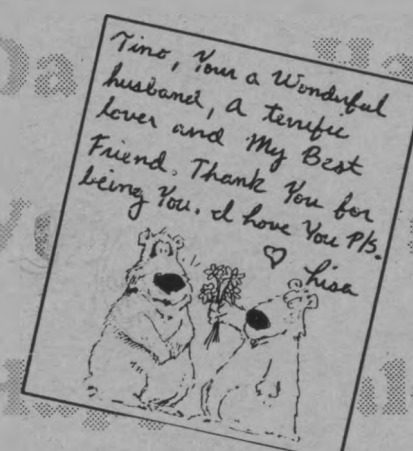 Tino, Your a Wonderful
husband, a terrific
lover and My Best
Friend. Thank You for
being You. I love You P/S.
♡ Lisa
Da
Ha